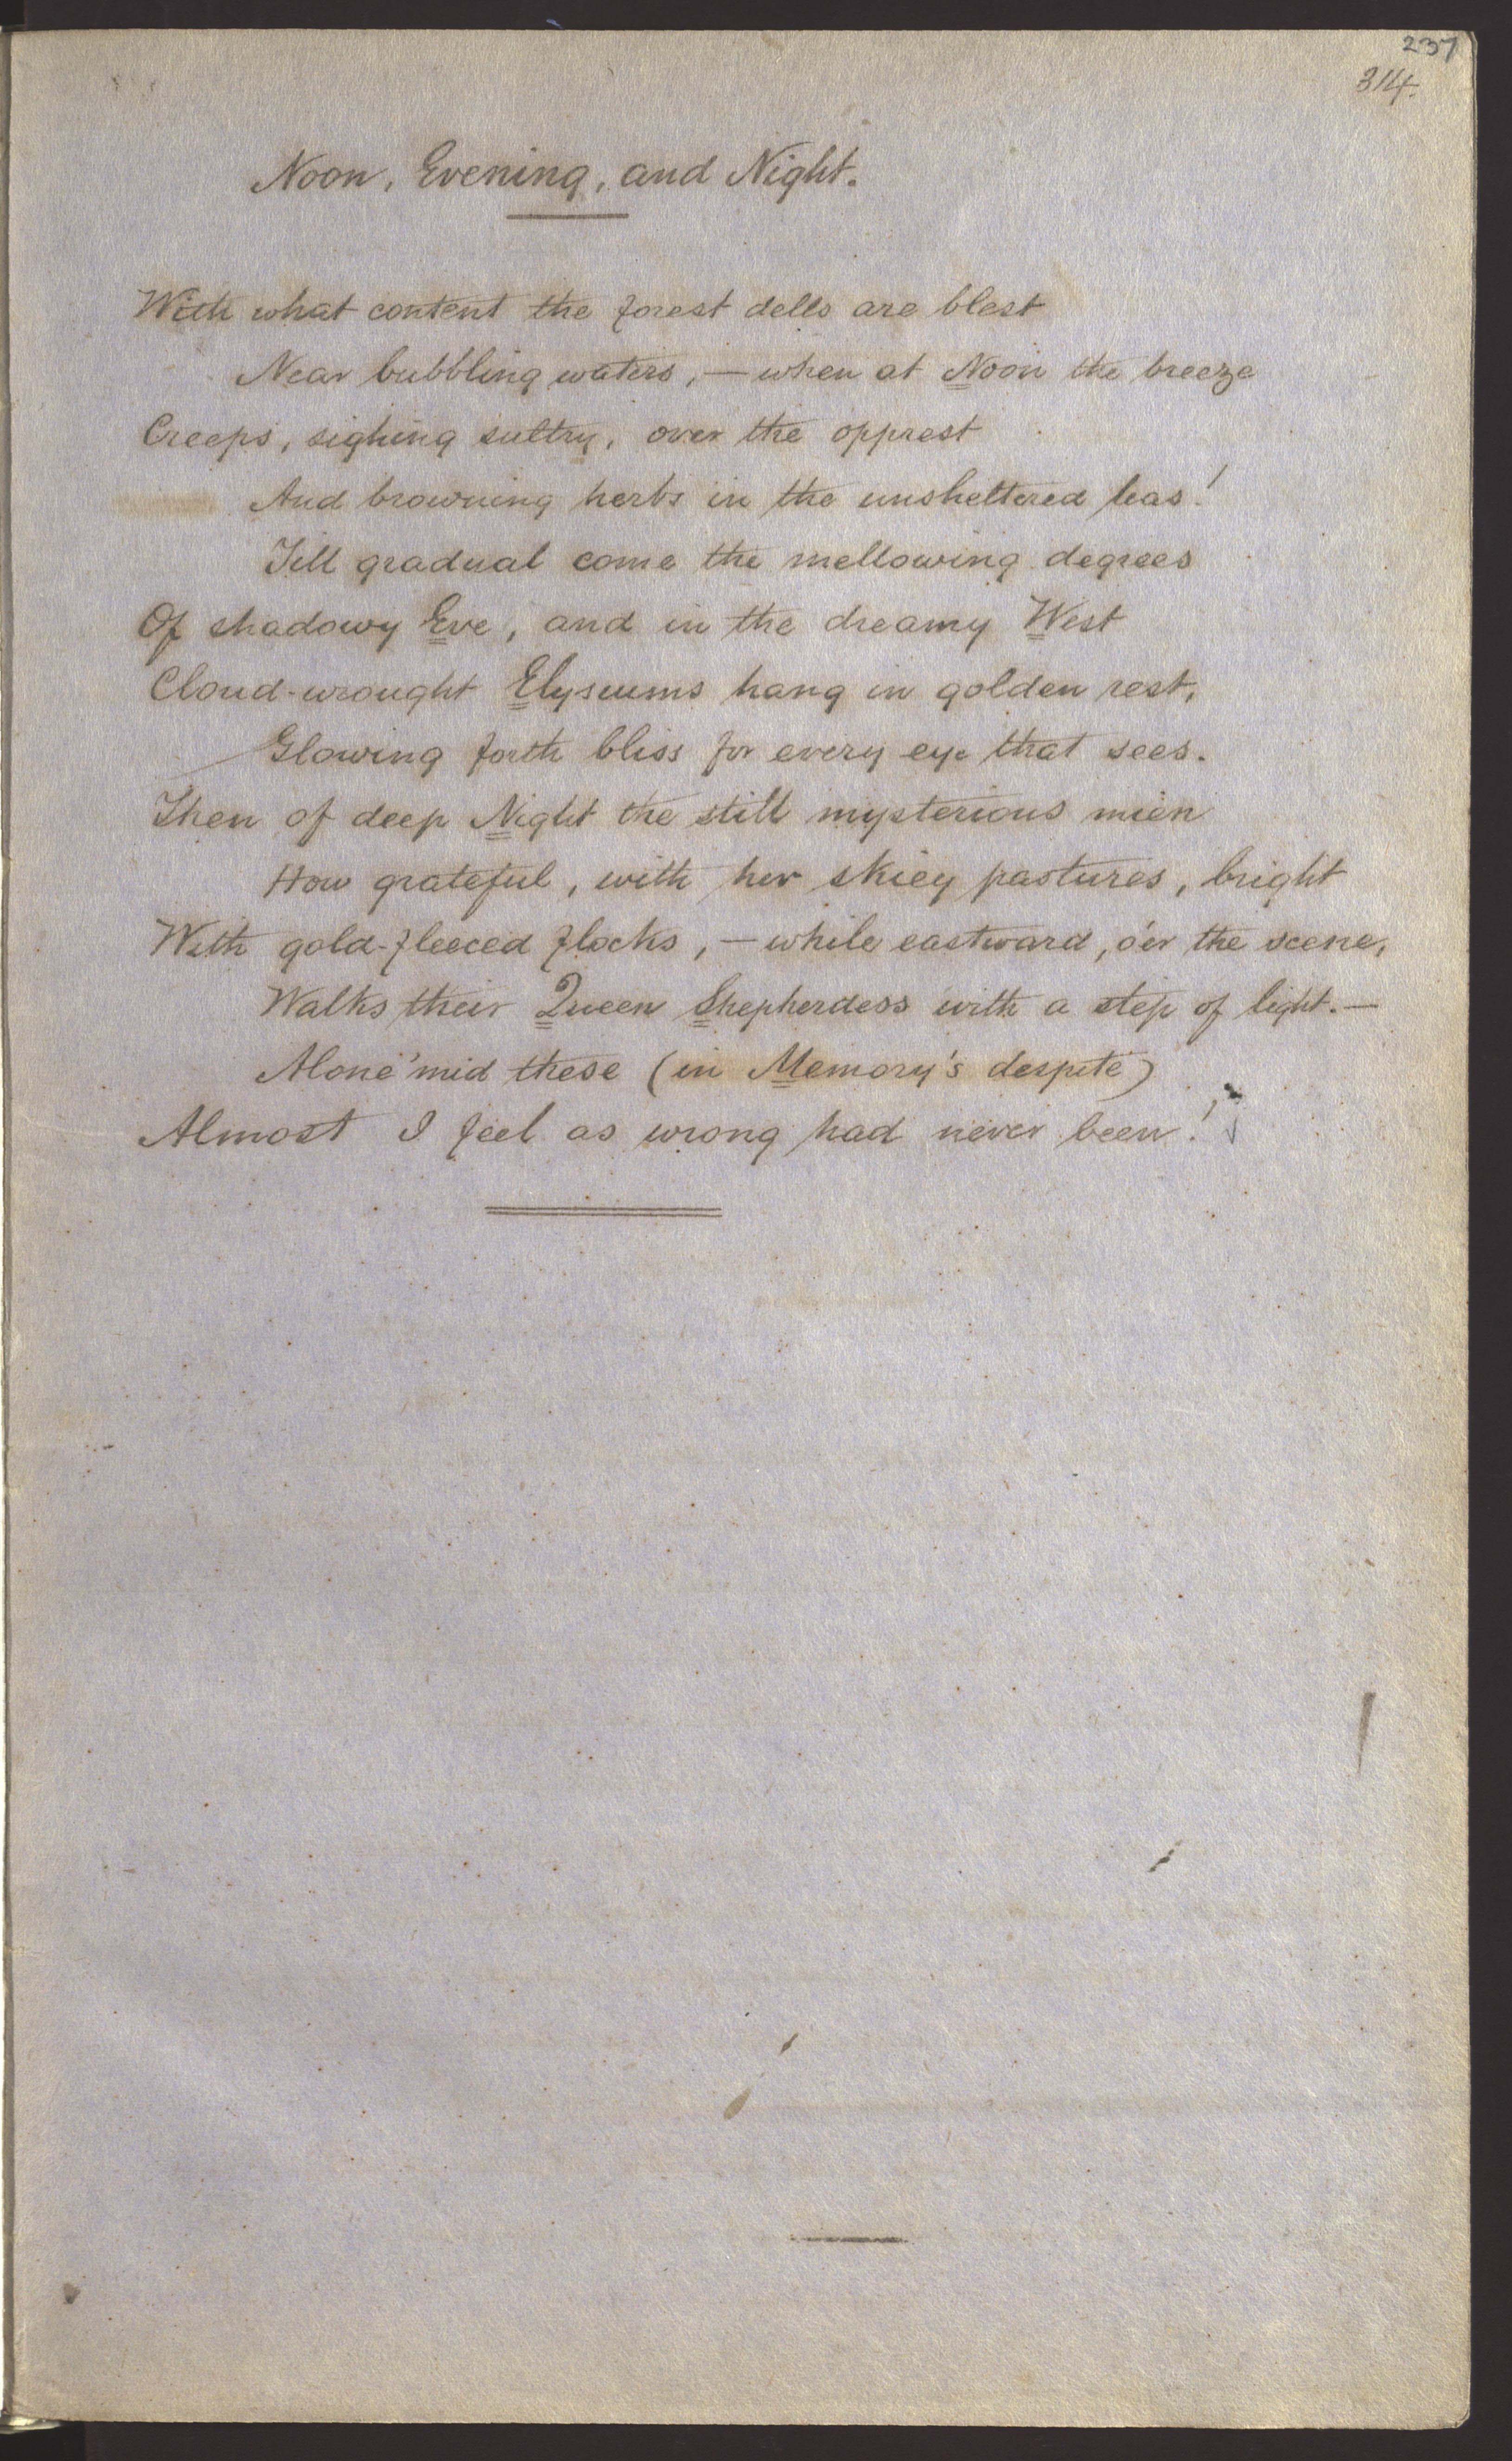 237
314.
Noon, Evening, and Night.
With what content the forest dells are blest
Near bubbling waters, — when at Noon the breeze
Creeps, sighing sultry, over the opprest
And browning herbs in the unsheltered leas!
Till gradual come the mellowing degrees
Of shadowy Eve, and in the dreamy West
Cloud-wrought Elysiums hang in golden rest,
Glowing forth bliss for every eye that sees.
Then of deep Night the still mysterious mien
How grateful, with her skiey pastures, bright
With gold-fleeced flocks, — while eastward, o'er the scene,
Walks their Queen Shepherdess with a step of light. —
Alone 'mid these (in Memory's despite)
Almost I feel as wrong had never been!